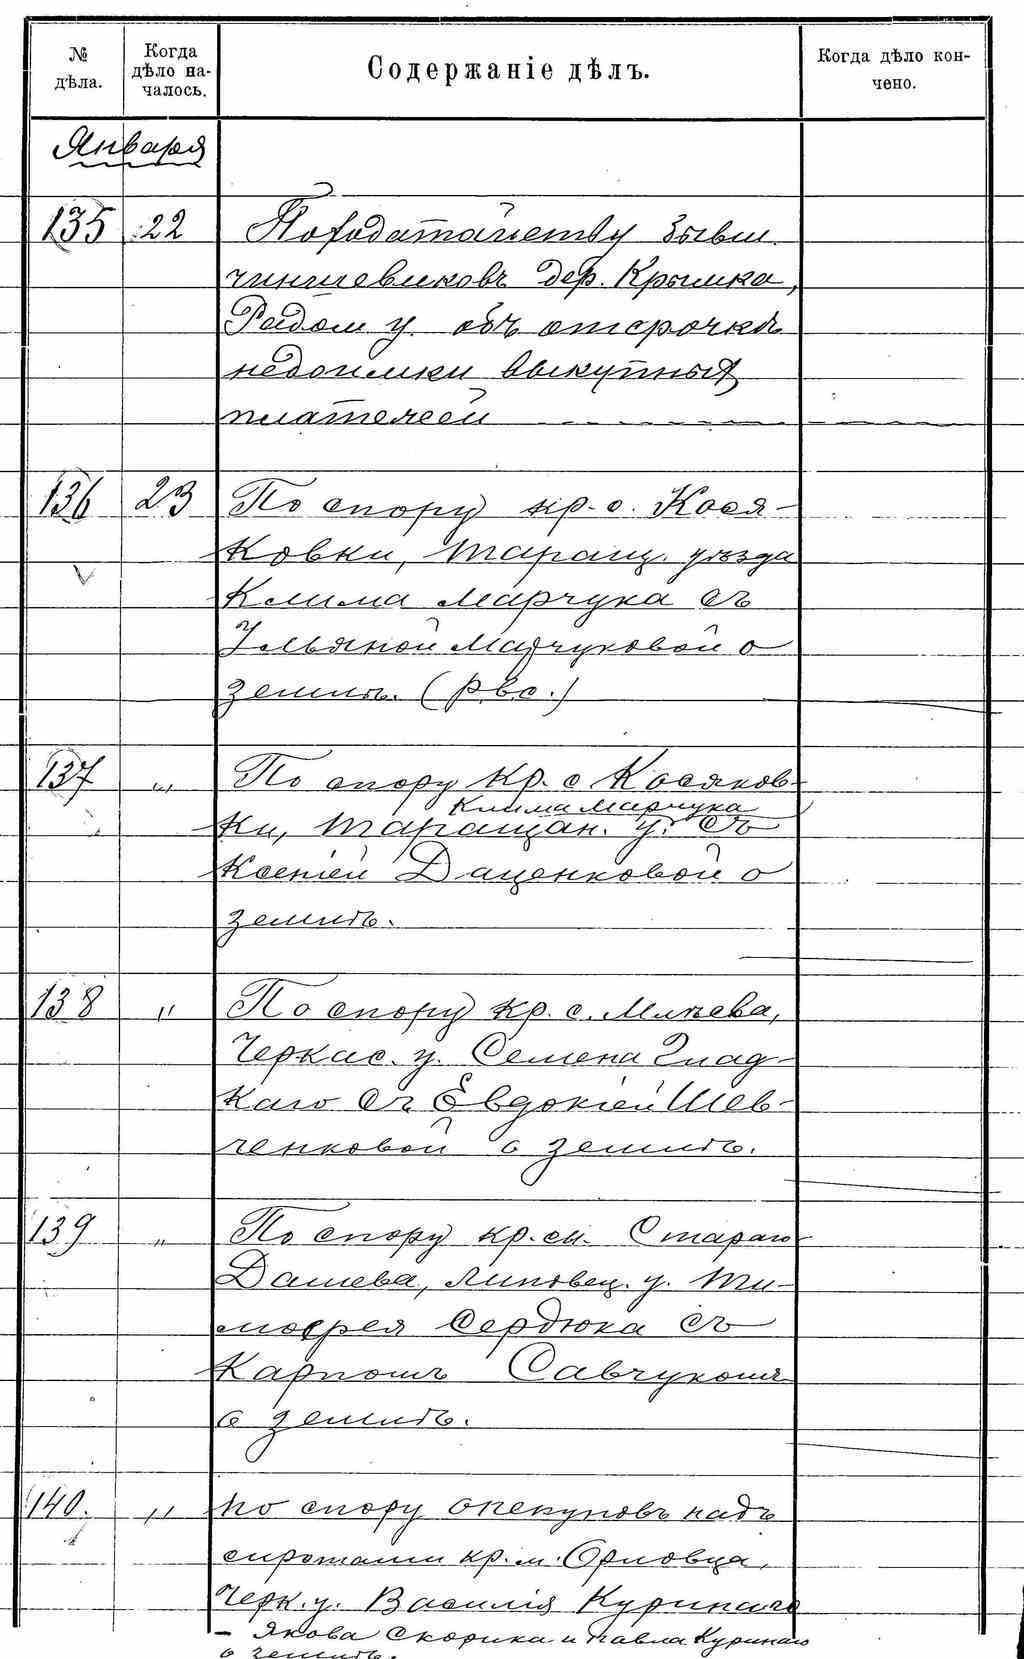 № дѣла.
Когда дѣло на-чалось.
Содержаніе дѣлъ.
Когда дѣло кон-чено.
Января
135 22 По ходатайству бывш.
чиншевиковъ дер. Крымка,
Радом у. объ отсрочкѣ
недоимки выкупныхъ
платежей
136 23 По спору кр. с. Кося-
ковки, Таращ. уѣзда
Клима Марчука съ
Ульяной Марчуковой о
землѣ. (р.в.о.)
137 „ По спору кр. с Косяков-
Клима Марчука
ки, Таращан. у. съ
Ксеніей Даценковой о
землѣ.
138 „ По спору кр. с. Млѣева,
Черкас. у. Семена Глад-
каго съ Евдокіей Шев-
ченковой о землѣ.
139 „ По спору кр. си. Стараго
Дашева, Липовец. у. Ти-
мофея Сердюка съ
Карпомъ Савчукомъ
о землѣ.
140. „ по спору опекуновъ надъ
сиротами кр. м. Орловца,
Черк. у. Василія Куринаго
- Якова Скорика и Павла Куринаго
о землѣ.